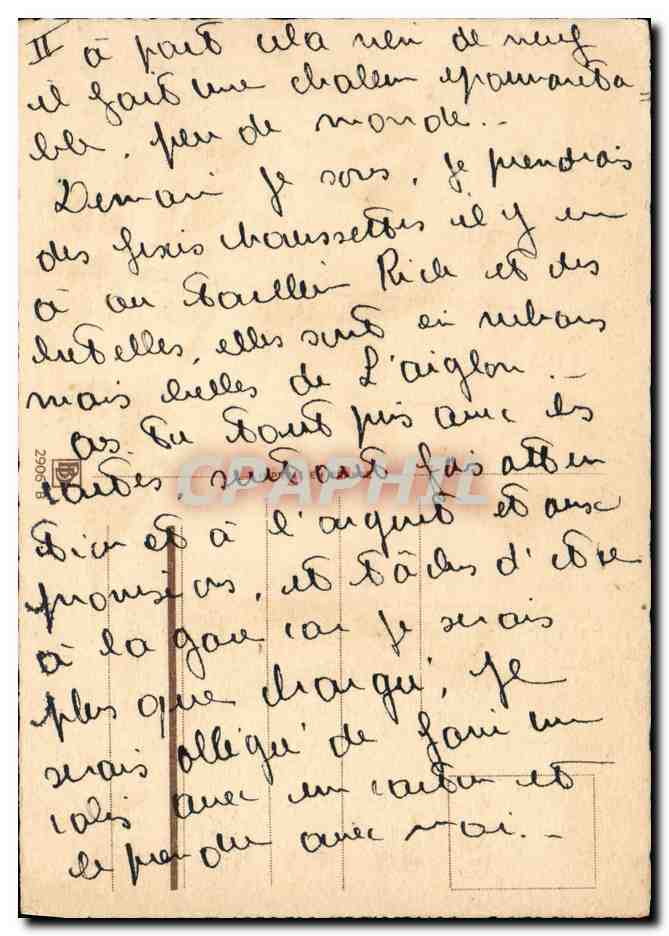 II à part cela rien de neuf
il fait une chaleur epouvanta=
ble, peu de monde..
Demain je sors, je prendrais
des fixes chaussettes il y en
à au Rich et des
bretelles, elles sont en rubans
mais belles de L'aiglon.-
as.tu tout pris avec les
cartes, surtout fais atten
tion et à l'argent et aux
provisions, et tâches d'etre
à la gare car je serais
plus que chargé, je
serais obligé de faire un
colis avec un carton et
le prendre avec moi.-
2906 B
BD
CPAPHIL